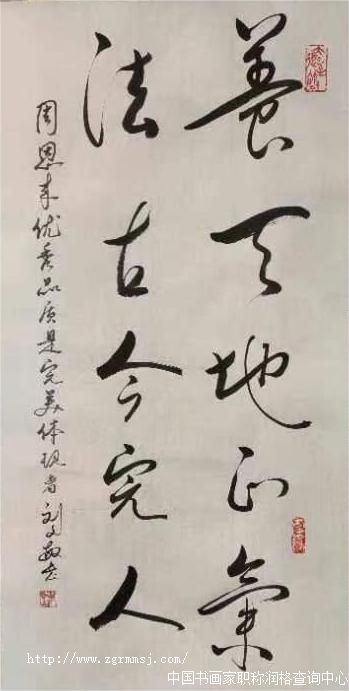 養天地正氣
法古今完人
周恩来优秀品质是完美体现者刘文敏书
http://www.zgrmmsj.com/
中国书画家职称润格查询中心